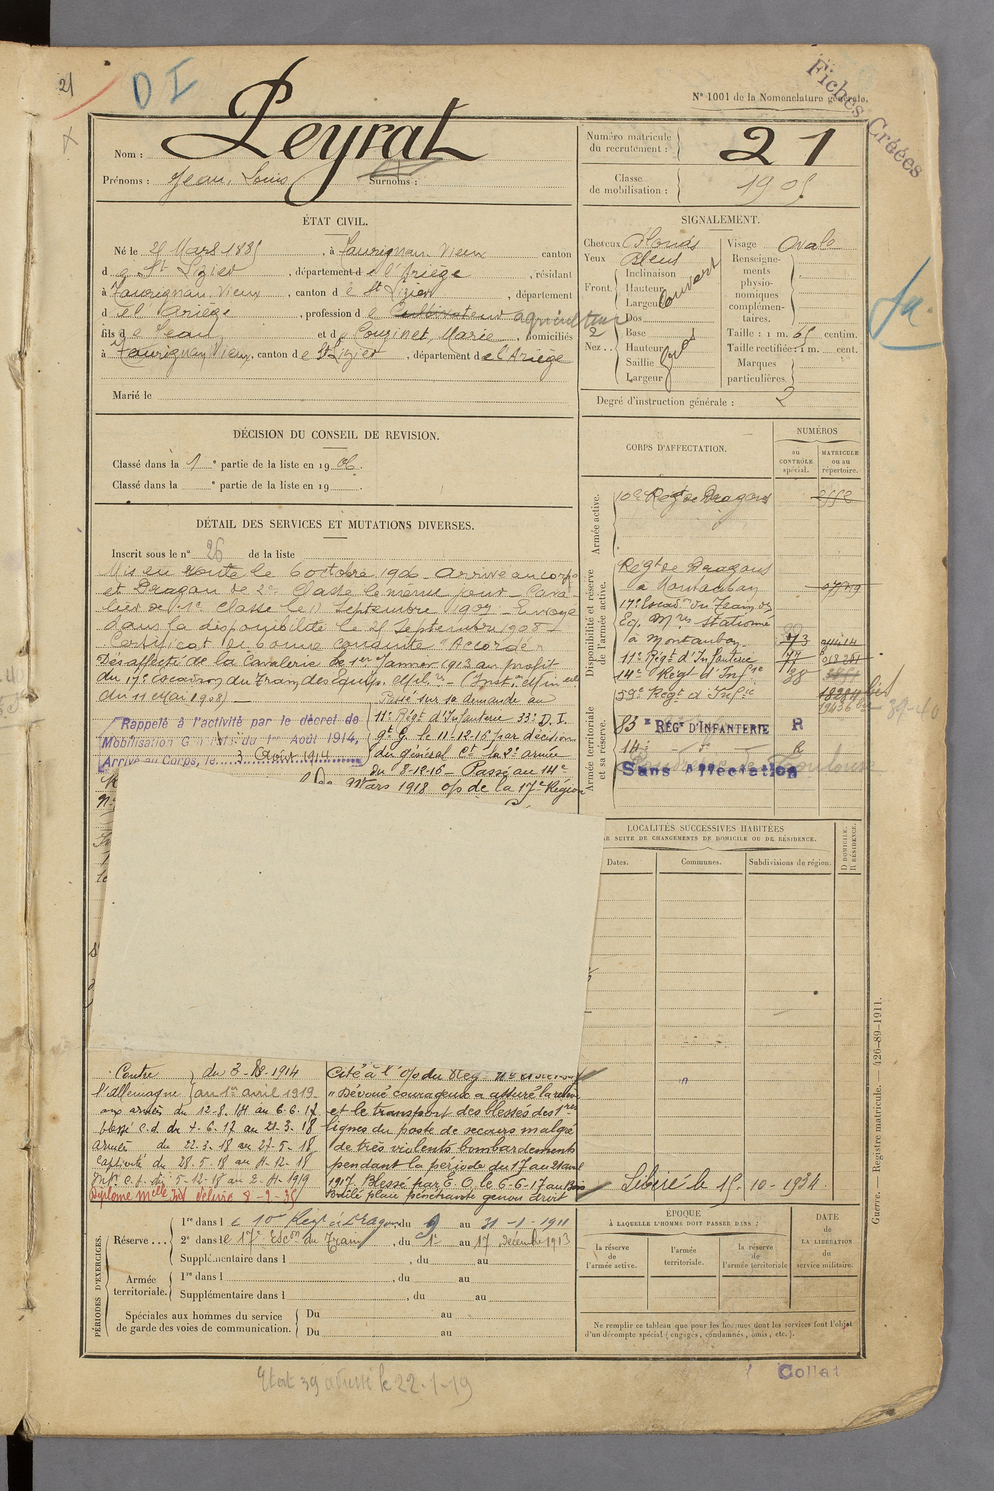 21
D I
Fiches Créées
N° 1001 de la Nomenclature générale.
Nom : Peyrat
Prénoms : Jean, Louis Surnoms :
Numéro matricule du recrutement : 21
Classe de mobilisation : 1905
ÉTAT CIVIL.
Né le 25 Mars 1885, à Taurignan-Vieux canton
de St Lizier, département de l'Ariège, résidant
à Taurignan-Vieux, canton de St Lizier, département
de l'Ariège, profession de Cultivateur agriculteur
fils de Jean et de Couzinet, Marie, domiciliés
à Taurignan Vieux, canton de St Lizier, département de l'Ariège
Marié le
SIGNALEMENT.
Cheveux Blonds
Yeux Bleus
Front. Inclinaison
Hauteur
Largeur
couvert
Nez. Dos
Base
Hauteur
Saillie
Largeur
gros
Visage Ovale
Renseignements physionomiques complémentaires.
Taille : 1 m. 65 centim.
Taille rectifiée : 1 m. cent.
Marques particulières
Degré d'instruction générale : 2
DÉCISION DU CONSEIL DE REVISION.
Classé dans la 1e partie de la liste en 1906.
Classé dans la e partie de la liste en 19
DÉTAIL DES SERVICES ET MUTATIONS DIVERSES.
Inscrit sous le n° 26 de la liste
Mis en route le 6 octobre 1906 - arrivé au corps
et Dragon de 2e Classe le meme jour - Cava
lier de 1e classe le 11 Septembre 1907 - Envoyé
dans la disponibilité le 25 Septembre 1908 -
Certificat de bonne conduite "Accordé"
Désaffecté de la Cavalerie le 1er Janvier 1913 au profit
du 17e escadron du Train des Equip. Milres - (Inst. on Min elle
du 11 Mai 1908) -
Rappelé à l'activité par le décret de
Mobilisation Générale du 1er Août 1914,
Arrivé au Corps, le 3 Août 1914
Passé sur sa demande au
11e Régt d'Infanterie 33e D. I.
le 11-12-15 par décision
du général Ct la 2e armée
du 8-12-15 - Passé au 14e
Mars 1918 o/s de la 17e Région
CORPS D'AFFECTATION.
NUMÉROS
au CONTRÔLE spécial.
MATRICULE ou au répertoire.
Armée active.
10e Régt de Dragons
Disponibilité et réserve de l'armée active.
Regt de Dragons
à Montauban
17e Escad. du Train des
Eq. Mres stationné
à Montauban
11e Régt d'Infanterie
14e Régt d'Infie
59e Régt d'Infie
Armée territoriale et sa réserve.
83e RÉGt D'INFANTERIE R
14e
Sans affectation
LOCALITÉS SUCCESSIVES HABITÉES
PAR SUITE DE CHANGEMENTS DE DOMICILE OU DE RÉSIDENCE.
Dates.
Communes.
Subdivisions de région.
D DOMICILE. R RÉSIDENCE.
Contre du 3-8-1914
l'Allemagne au 1er avril 1919
aux armées du 12-8-14 au 6-6-17
blessé c.d. du 7-6-17 au 21-3-18
armées du 22-3-18 au 27-5-18
Captivité du 28-5-18 au 4-12-18
du 5-12-18 au 2-4-1919
Diplome
Cité à l'o/du Reg
"Dévoué courageux a assuré la relève
et le transport des blessés des 1res
lignes du poste de secours malgré
de très violents bombardements
pendant la période du 17 au 21 avril
1917. Blessé par E.O. le 6-6-17 au Bois
Brûlé plaie pénétrante genou droit
Libéré le 15-10-1934.
PÉRIODES D'EXERCICES.
Réserve... 1re dans le 10e Régt de Dragons du 9 au 31-1-1911
2e dans le 17e Escon du Train, du 1er au 17 décembre 1913
Supplémentaire dans l , du au
Armée territoriale. 1re dans l , du au
Supplémentaire dans l , du au
Spéciales aux hommes du service de garde des voies de communication. Du au
Du au
ÉPOQUE
À LAQUELLE L'HOMME DOIT PASSER DANS :
la réserve de l'armée active.
l'armée territoriale.
la réserve de l'armée territoriale
DATE de LA LIBÉRATION du service militaire.
Ne remplir ce tableau que pour les hommes dont les services font l'objet
d'un décompte spécial (engagés, condamnés, omis, etc.).
Guerre. — Registre matricule. — 426-89-1911.
Collat
Etat 39 adressé le 22-1-19